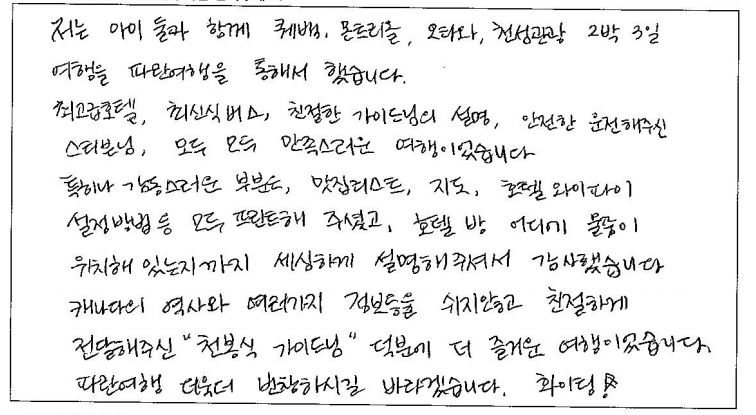 저는 아이 둘과 함께 퀘벡, 몬트리올, 오타와, 천섬관광 2박 3일
여행을 파란여행을 통해서 했습니다.
최고급호텔, 최신식버스, 친절한 가이드님의 설명, 안전한 운전해주신
스티븐님, 모두 모두 만족스러운 여행이었습니다
특히나 감동스러운 부분은, 맛집리스트, 지도, 호텔 와이파이
설정방법등 모두 프린트해 주셨고, 호텔 방 어디에 물품이
위치해 있는지까지 세심하게 설명해주셔서 감사했습니다
캐나다의 역사와 여러가지 정보등을 쉬지않고 친절하게
전달해주신 "천봉식 가이드님" 덕분에 더 즐거운 여행이었습니다.
파란여행 더욱더 번창하시길 바라겠습니다. 화이팅!